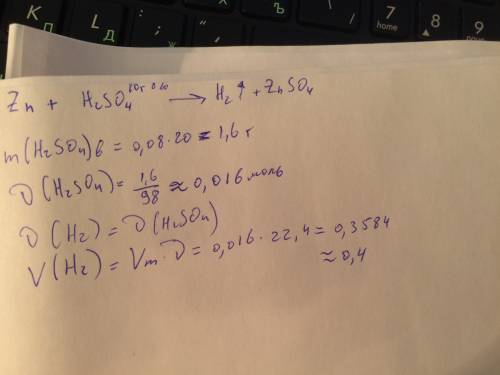 К Л Д Б Ю 7 home 8 9
Zn + H₂SO₄ → H₂↑ + ZnSO₄
m(H₂SO₄)в = 0,08·20 = 1,6 г
D(H₂SO₄) = 1,6/98 ≈ 0,016 моль
D(H₂) = D(H₂SO₄)
V(H₂) = Vm·D = 0,016·22,4 = 0,3584
≈ 0,4